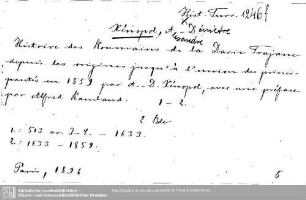 Hist. Turc. 1246 f
Xénopol, A. Démètre
Alexandre
Histoire des Roumains de la Dacie Trajane
depuis les origines jusqu'à l'union des princi-
pautés en 1859 par A. D. Xénopol, avec une préface
par Alfred Rambaud.
1-2.
2 Bde
1.: 513 av. J.-C. - 1633.
2.: 1633 - 1859.
Paris, 1896
8